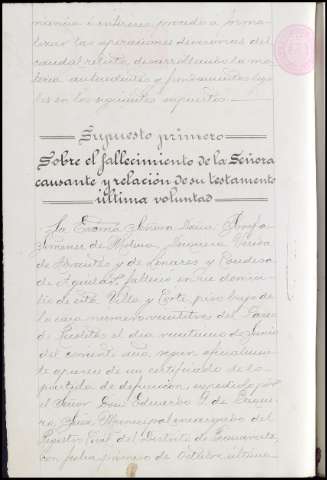 mania e intereses procede a forma
lizar las operaciones divisorias del
caudal relicto, desarrollando la ma
teria antecedentes y fundamentos lega
les en los siguientes supuestos.
Supuesto primero
Sobre el fallecimiento de la Señora
causante y relación de su testamento
última voluntad
La Excma Señora Doña Josefa
Jimenez de Molina, Viuda
de y de Linares y Condesa
de falleció en su domici
lio de esta Villa y Corte, piso bajo de
la casa numero veintitres del Paseo
de Recoletos el dia veintiuno de Junio
del corriente año, segun
aparece de un certificado de la
partida de defunción, expedido por
el Señor Don Eduardo
Juez Municipal encargado del
Registro Civil del Distrito de Buenavista,
con fecha primero de Octubre último